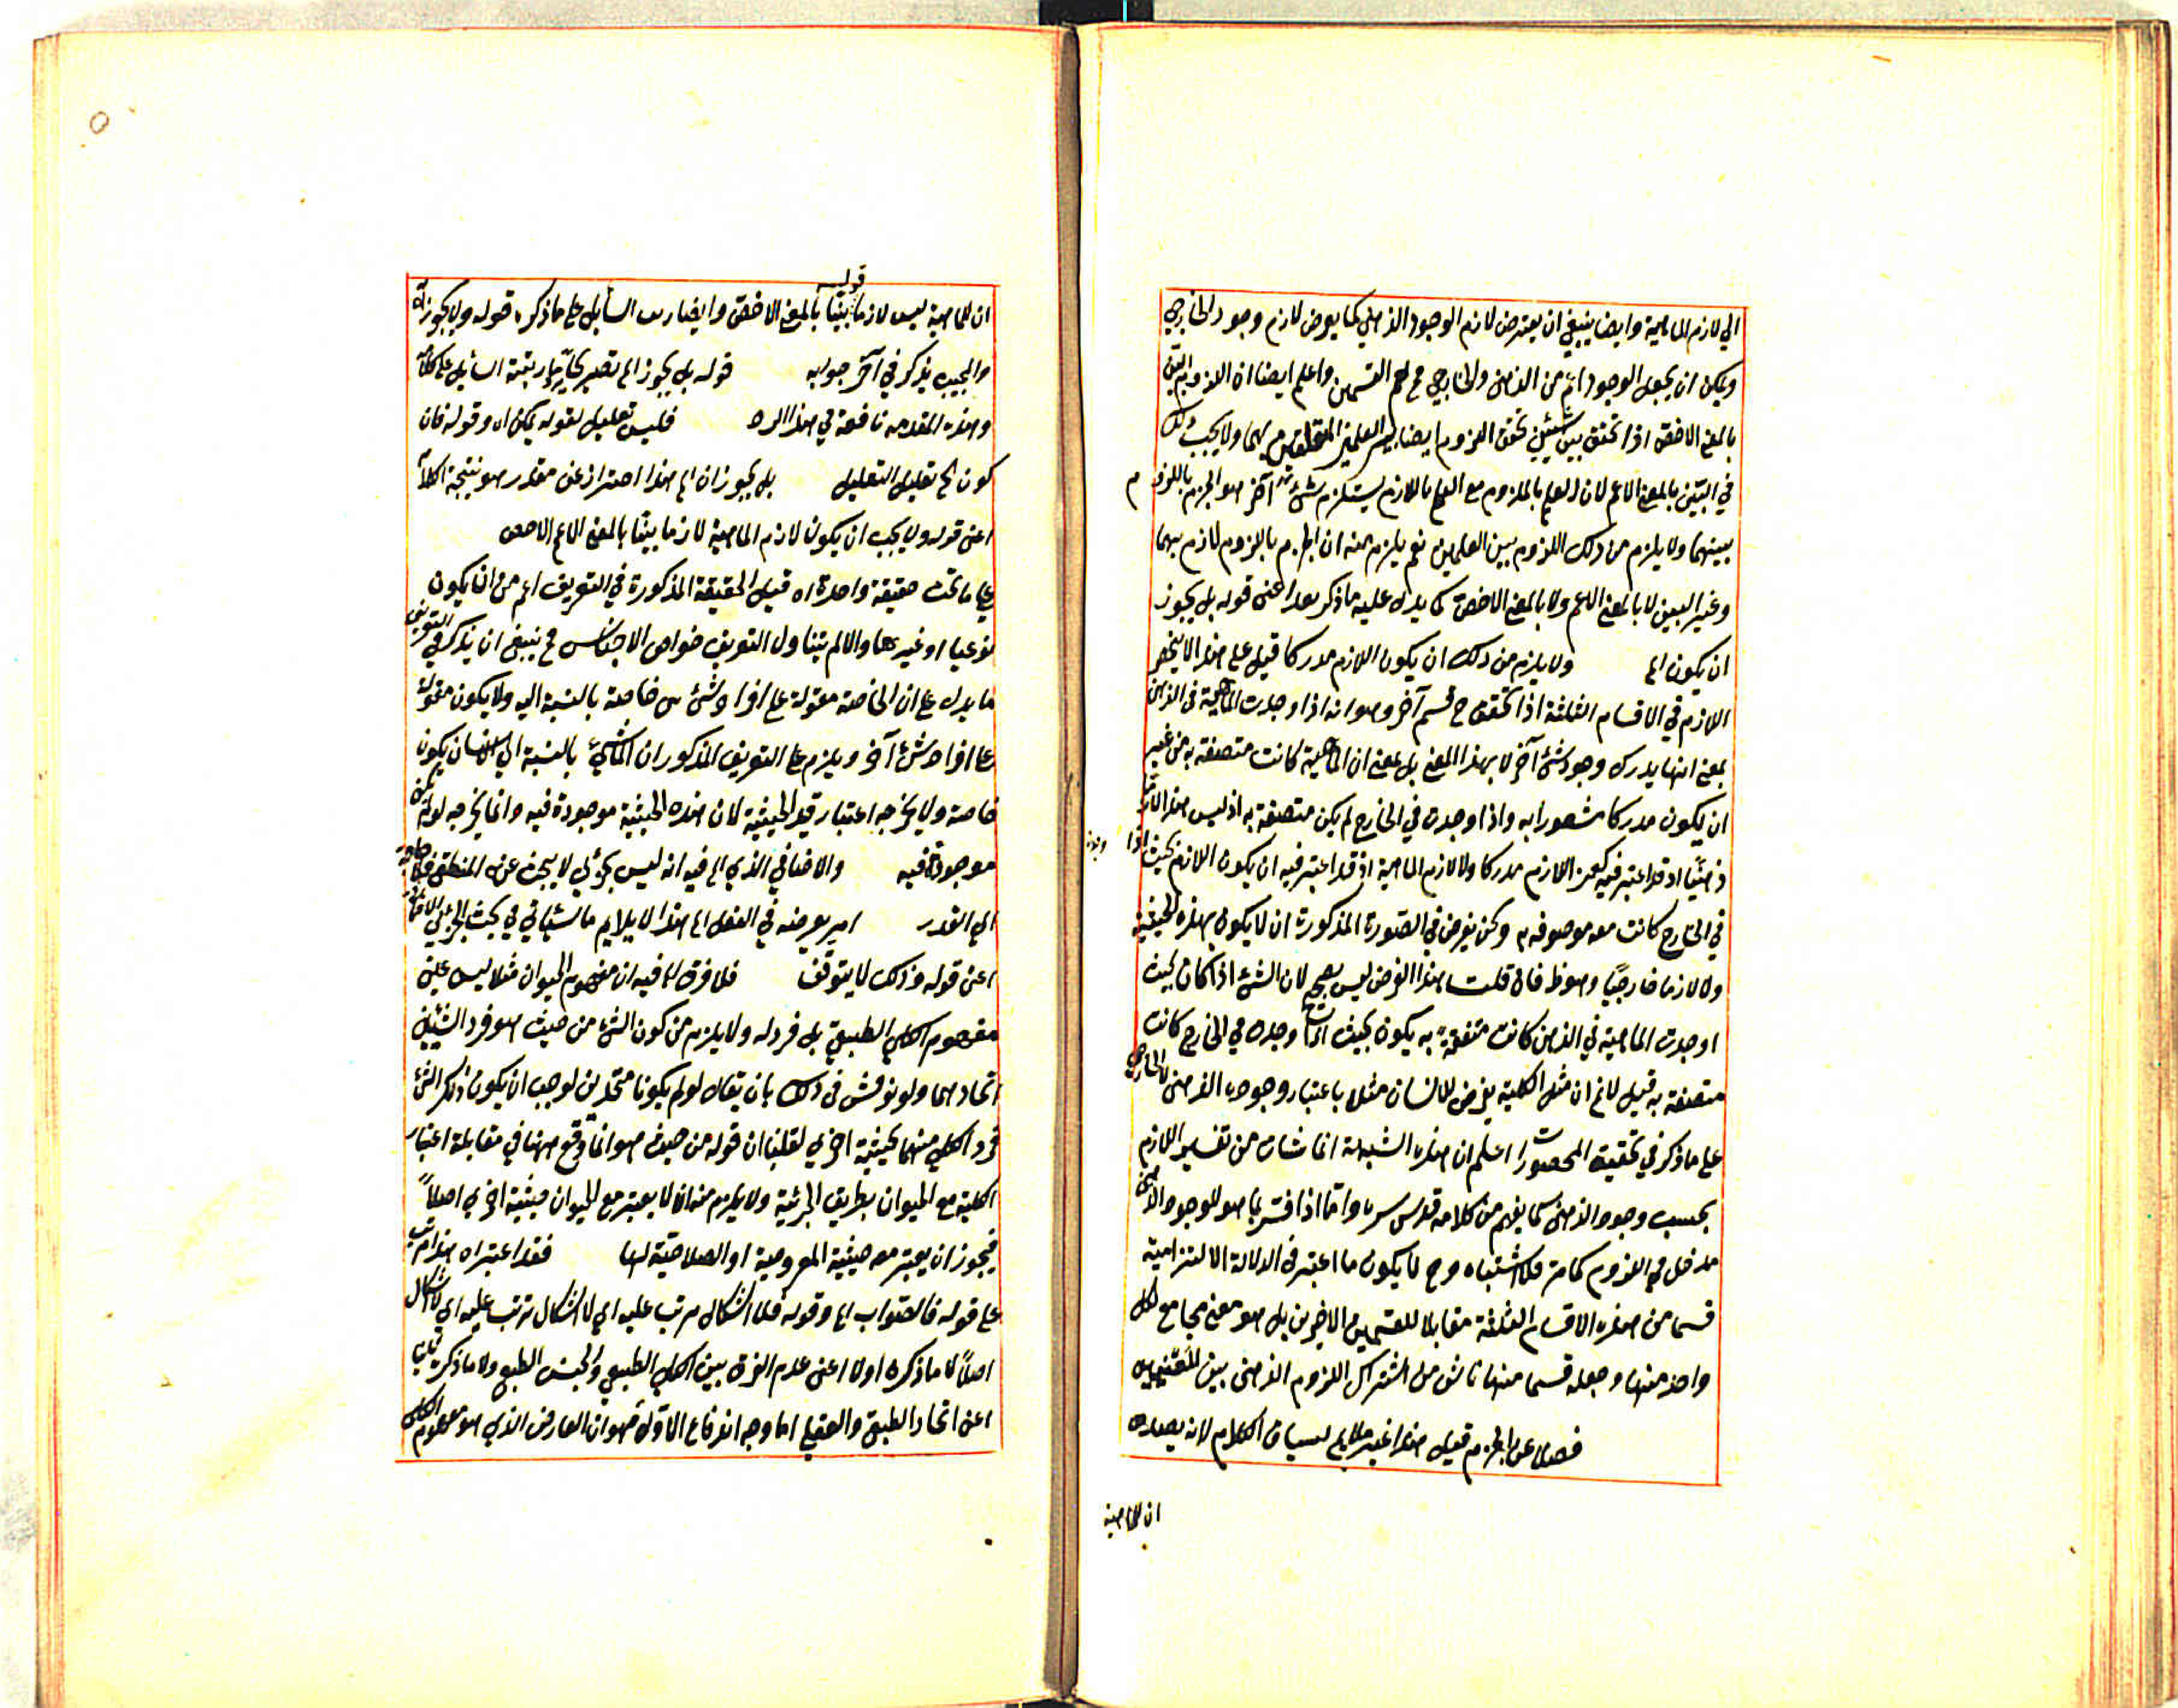 الي لازم الماهية وايضا ينبغي ان يعترض لازم الوجود الذهني كما يعرض لازم وجود الخارجي
ويمكن ان يجعل الوجود اعم من الذهني والخارجي القسمين واعلم ايضا ان اللزوم البين
بالمعنى الاخص اذا تحقق بين شيئين تحقق اللزوم ايضا بين العلمين المتعلقين بهما ولا يجب ذلك
في البين بالمعنى الاعم لان العلم بالملزوم مع العلم باللازم يستلزم شئ آخر هو الجزم باللزوم
بينهما ولا يلزم من ذلك اللزوم بين العلمين نعم يلزم منه ان الجزم باللزوم لازم بهما
وغير البين لا بالمعنى الاعم ولا بالمعنى الاخص كما يدل عليه ما ذكر بعد اعنى قوله بل يجوز
ان يكون الخ ولا يلزم من ذلك ان يكون اللازم مدركا قيل على هذا لا ينحصر
اللازم في الاقسام الثلثة اذا تحقق ح قسم آخر وهو انه اذا وجدت الماهية في الذهن
بمعنى انها يدرك وجود شئ آخر لا بهذا المعنى بل بمعنى ان الماهية كانت متصفة به من غير
ان يكون مدركا شعورا به واذا وجدت في الخارج لم يكن متصفة به اذ ليس هذا اللازم
ذهنيا اذ قد اعتبر فيه كون اللازم مدركا ولا لازم الماهية اذ قد اعتبر فيه ان يكون اللازم بحيث اذا وجد
في الخارج كانت معه موصوفه به ونحن نفرض في الصورة المذكورة ان لا يكون بهذه الحيثية
ولا لازما خارجيا وهو ظ فان قلت هذا الفرض ليس بصحيح لان الشئ اذا كان بحيث
اوجدت الماهية في الذهن كانت متصفة به يكون بحيث اذا وجدت في الخارج كانت
متصفة به قيل لا نم ان مثل الكلية يعرض للانسان مثلا باعتبار وجوده الذهنى لا الخارجي
على ما ذكر في تحقيق المحصورات اعلم ان هذه الشبهة انما نشأت من تفسير اللازم
بحسب وجود الذهنى كما يفهم من كلامه قدس سره واما اذا فسر بما هو للوجود الذهنى
مدخل في اللزوم كما مر فلا اشتباه وح لا يكون ما اعتبر في الدلالة الالتزامية
قسما من هذه الاقسام الثلثة مقابلا للقسمين الاخيرين بل هو معنى مجامع لكل
واحد منها وجعله قسما منها ناش من اشتراك اللزوم الذهنى بين المعنيين
فضلا عن الجزم قيل هذا غير ملايم لسياق الكلام لانه بصدد
ان الماهية
قوله
ان الماهية ليس لازما بينا بالمعنى الاخص وايضا السايل على ما ذكره قوله ولا يجوز
والمجيب يذكر في آخر جوابه قوله بل يجوز الخ السايل على كلامه
وهذه المقدمه نافعة في هذا الرد فليس تعليل لقوله يمكن اه وقوله فان
كون الخ تعليل التعليل بل يجوز ان الخ هذا احتراز عن مقدر هو نتيجة الكلام
اعنى قوله ولا يجب ان يكون لازم الماهية لازما بينا بالمعنى الاعم الاخص
على ما تحت حقيقة واحدة اه قيل الحقيقة المذكورة في التعريف اعم من ان يكون
نوعيا او غيرها والا لم يتناول التعريف خواص الاجناس ح ينبغي ان يذكر في التعريف
ما يدل على ان الخاصة مقولة على افراد شئ خاصة بالنسبة اليه ولا يكون مقولة
على افراد شئ آخر ويلزم على التعريف المذكور ان الماشي بالنسبة الي الانسان يكون
خاصة ولا يخرجه اعتبار قيد الحيثية لان هذه الحيثية موجودة فيه وانما يخرجه لو لم يكن
موجودة فيه والاضافي الذي الخ فيه انه ليس بجزئي لا يبحث عن المنطقى فلا حاجة
الي القدر امر يعرضه في العقل الخ هذا لا يلايم ما سيأتي في بحث الجزئي الاضافي
اعنى قوله وذلك لا يتوقف فلا فرق الخ فيه ان مفهوم الحيوان مثلا ليس عين
مفهوم الكلي الطبيعي بل فرد له ولا يلزم من كون الشئ من حيث هو فرد الشيئين
اتحادهما ولو نوقش في ذلك بان يقال لو لم يكونا متحدين لوجب ان يكون ذلك الشئ
فرد الكلي منهما بحيثية اخرى لقلنا ان قوله من حيث هو انما وقع ههنا في مقابلة اعتبار
الكلية مع الحيوان بطريق الجزئية ولا يلزم منه ان لا يعتبر مع الحيوان حيثية اخرى اصلا
فيجوز ان يعتبر معه حيثية المعروضية او الصلاحية لها فقد اعتبر اه هذا مرتب
على قوله فالصواب الخ وقوله فلا اشكال مرتب عليه اي لا اشكال ترتب عليه اي لا اشكال
اصلا لا ما ذكره اولا اعنى عدم الفرق بين الكلي الطبيعي والجنس الطبيعي ولا ما ذكره ثانيا
اعنى اتحاد الطبيعي والعقلي اما وجه اندفاع الاول فهو ان العارض الذي هو مفهوم الكلي